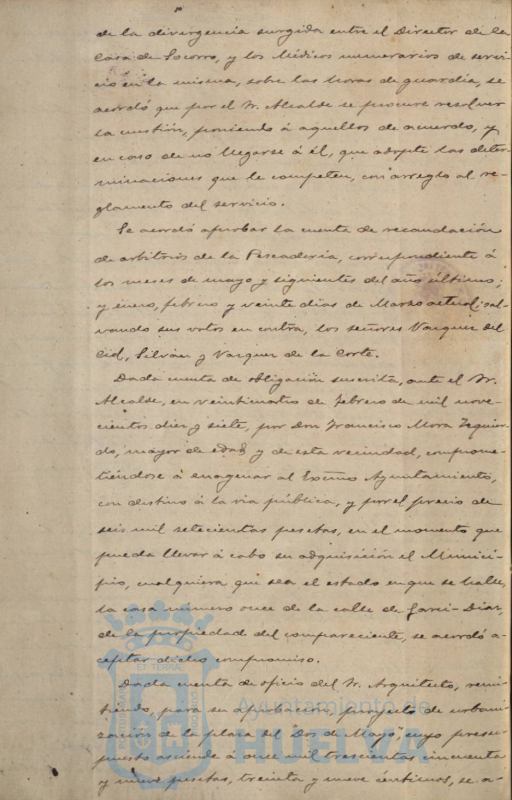 de la divergencia surgida entre el Director de la
Casa de Socorro, y los Médicos numerarios de servi-
cio en la misma, sobre las horas de guardia, se
acordó que por el Sr. Alcalde se procure resolver
la cuestión, poniendo á aquellos de acuerdo, y
en caso de no llegarse á él, que adopte las deter-
minaciones que le competen, con arreglo al re-
glamento del servicio.
Se acordó aprobar la cuenta de recaudación
de arbitrios de la Pescadería, correspondiente á
los meses de mayo y siguientes del año último;
y enero, febrero y veinte dias de Marzo actual; sal-
vando sus votos en contra, los señores Vazquez del
Cid, Silván y Vazquez de la Corte.
Dada cuenta de obligación suscrita, ante el Sr.
Alcalde, en veinticuatro de febrero de mil nove-
cientos diez y siete, por Don Francisco Mora Izquier-
do, mayor de edad y de esta vecindad, comprome-
tiéndose á enagenar al Excmo Ayuntamiento,
con destino á la via pública, y por el precio de
seis mil setecientas pesetas, en el momento que
pueda llevar á cabo su adquisición el Munici-
pio, cualquiera que sea el estado en que se halle,
la casa número once de la calle de Garci-Diaz,
de la propiedad del compareciente, se acordó a-
ceptar dicho compromiso.
Dada cuenta de oficio del Sr. Arquitecto, remi-
tiendo, para su aprobación, proyecto de urbani-
zación de la plaza del "Dos de Mayo", cuyo presu-
puesto asciende á once mil trescientas cincuenta
y nueve pesetas, treinta y nueve céntimos, se a-
Ayuntamiento de
HUELVA